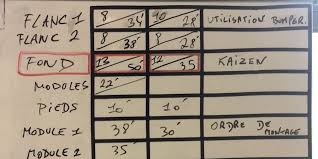 FLANC 1 8 34' 10 28' UTILISATION BUMPER.
FLANC 2 8 38' 8 28'
FOND 13 50' 12 35 KAIZEN
MODULES 22'
PIEDS 10' 10'
MODULE 1 38' 30' ORDRE DE MONTAGE
MODULE 2 35'